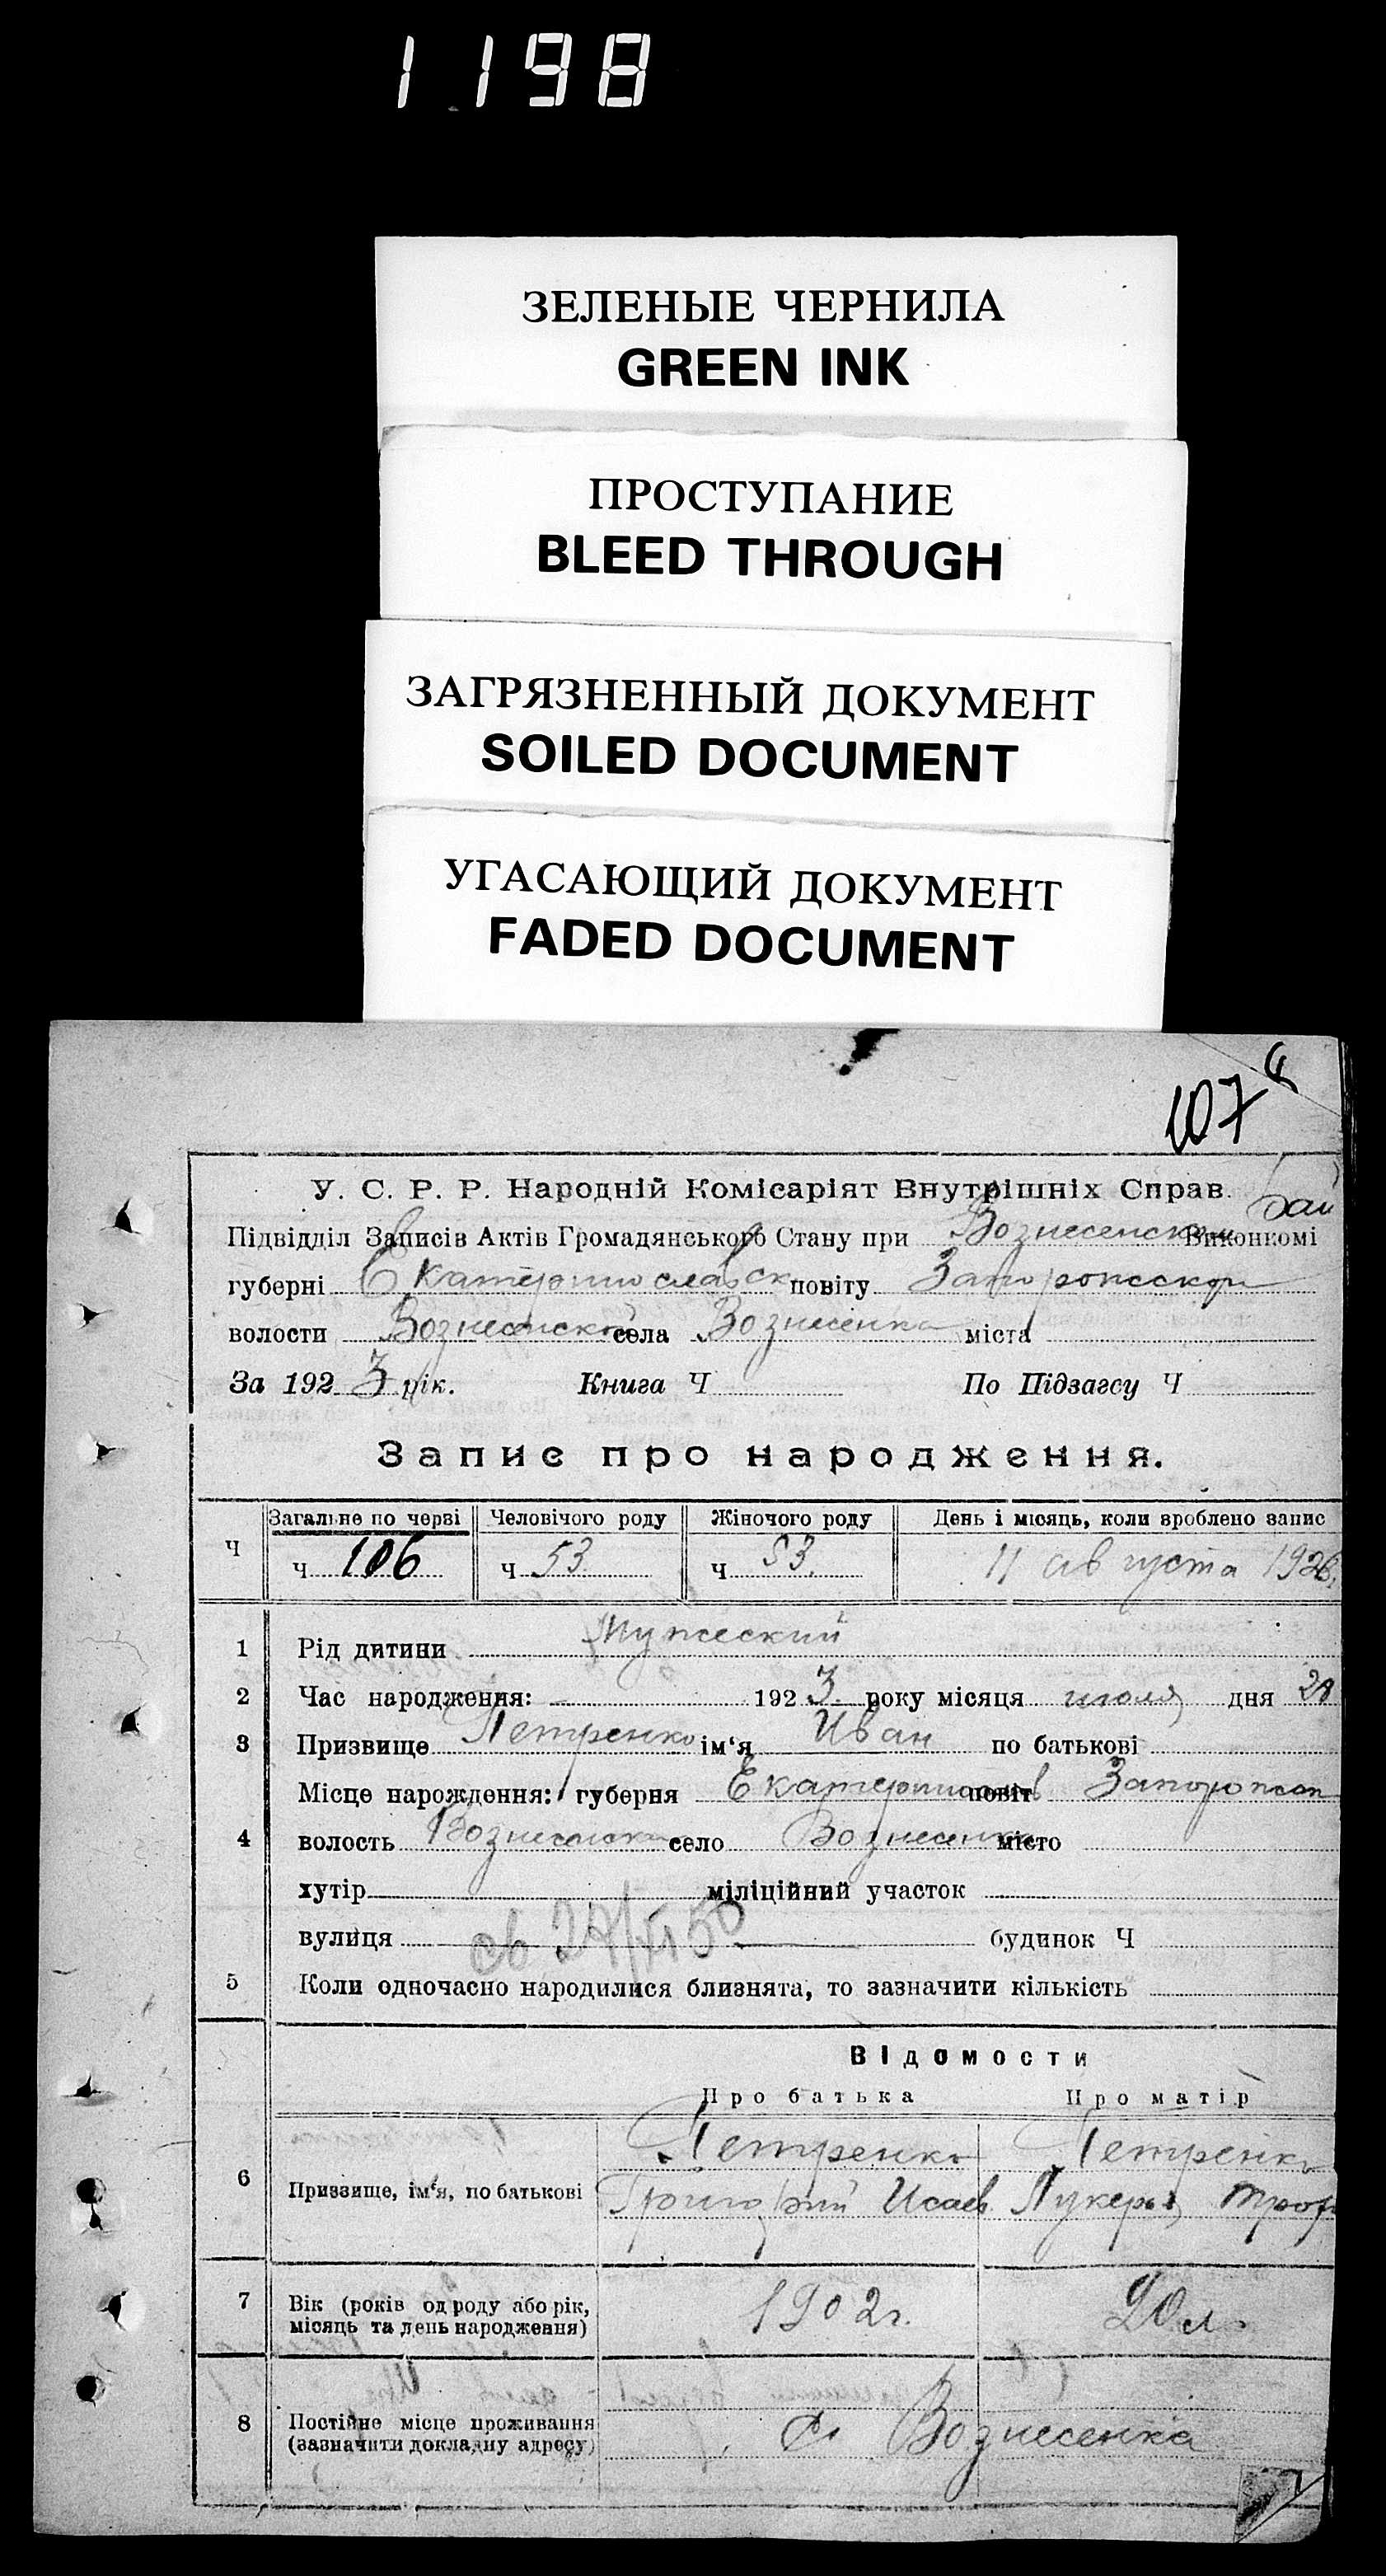 1198
ЗЕЛЕНЫЕ ЧЕРНИЛА
GREEN INK
ПРОСТУПАНИЕ
BLEED THROUGH
ЗАГРЯЗНЕННЫЙ ДОКУМЕНТ
SOILED DOCUMENT
УГАСАЮЩИЙ ДОКУМЕНТ
FADED DOCUMENT
107
У. С. Р. Р. Народній Комісаріят Внутрішніх Справ.
Підвідділ Записів Актів Громадянського Стану при Вознесенском Рай Виконкомі
губерні Екатеринославск повіту Запорожской
волости Вознесенской села Вознесенка міста
За 1923 рік. Книга Ч По Підзагсу Ч
Запис про народження.
Ч Загальне по черзі Человічого роду Жіночого роду День і місяць, коли зроблено запис
ч 106 ч 53 ч 53. 11 августа 1923
1 Рід дитини Мужеский
2 Час народження: 1923 року місяця июля дня
3 Призвище Петренко ім‘я Иван по батькові
Місце нарождення: губерня Екатеринослав повіт Запорожск
4 волость Вознесенска село Вознесенка місто
хутір міліційний участок
вулиця св 27/VI 50 будинок Ч
5 Коли одночасно народилися близнята, то зазначити кількість
Відомости
Про батька Про матір
Петренко Петренко
6 Призвище, ім‘я, по батькові Григорий Исаев Лукерья Троф
7 Вік (років од роду або рік, місяць та день народження) 1902 г. 20 л.
8 Постійне місце проживання (зазначити докладну адресу) с. Вознесенка